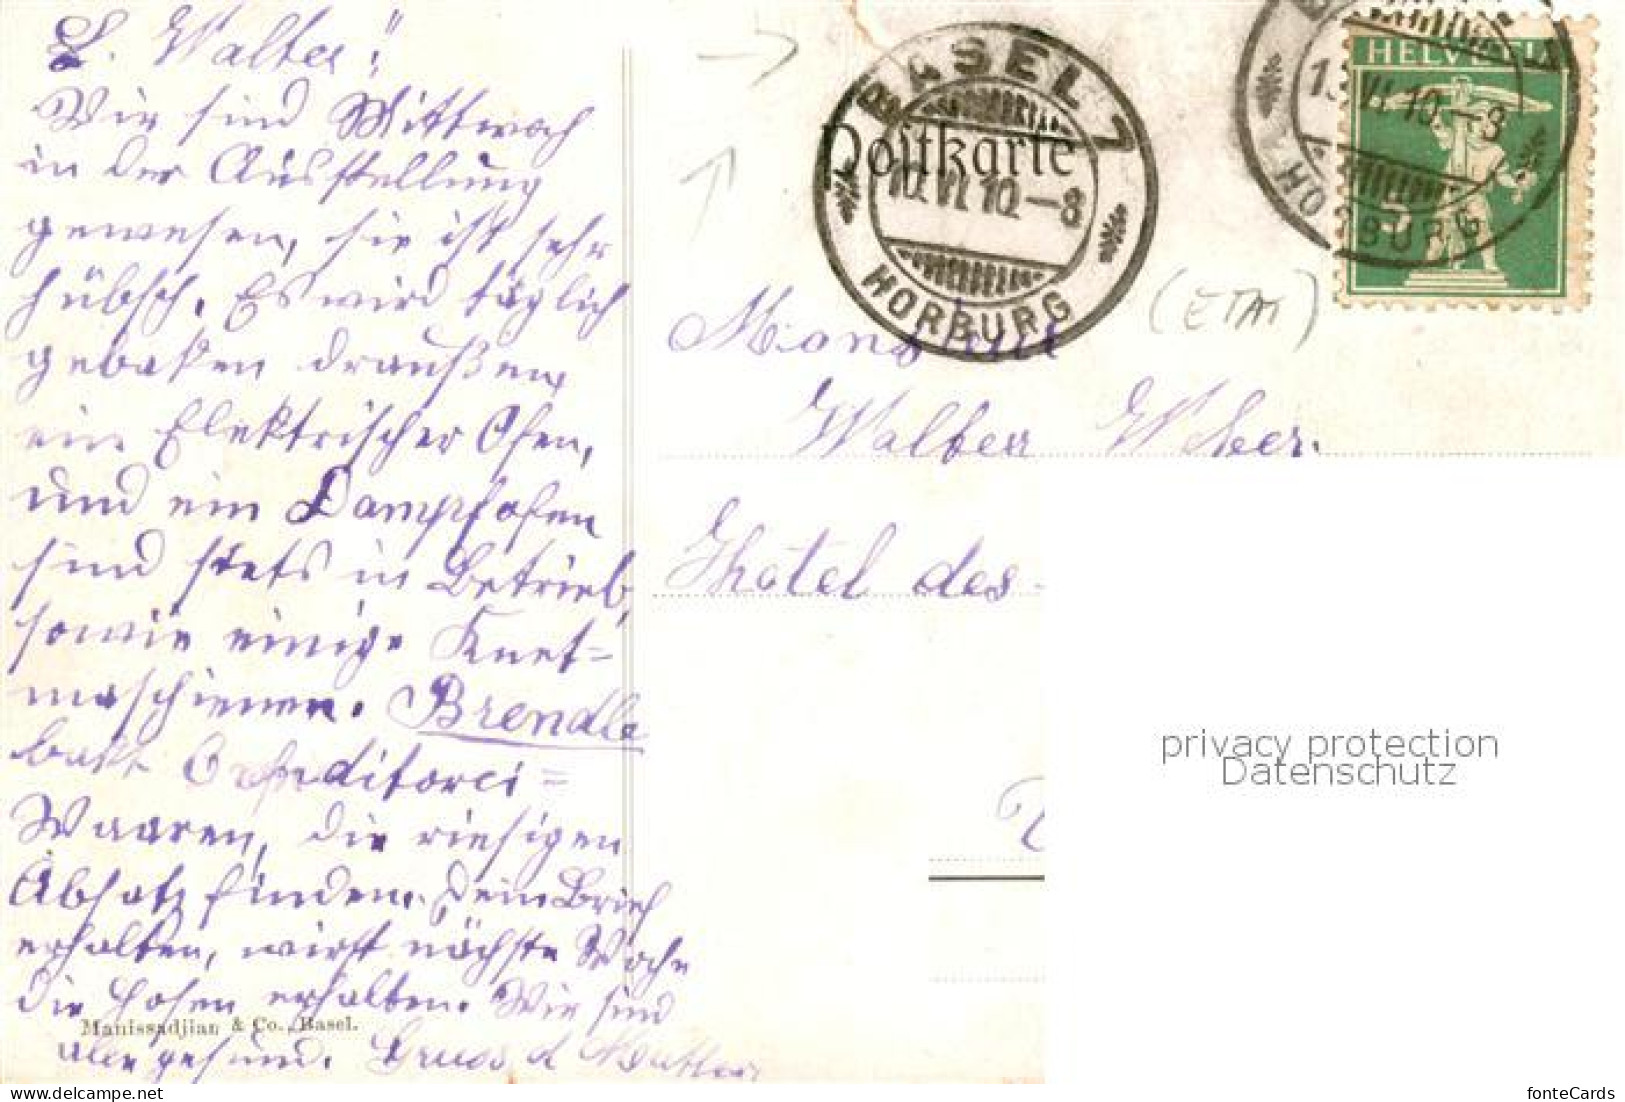 L. Walter!
Wir sind Mittwoch
in der Ausstellung
gewesen, sie ist sehr
hübsch. Es wird täglich
gebaken draußen,
ein Elektrischer Ofen,
und ein Dampfofen
sind stets in Betrieb,
sowie einige Knet=
maschienen. Brendle
bakt Conditorei=
Waaren, die riesigen
Absatz finden. Dein Brief
erhalten, wirst nächste Woche
die Hosen erhalten. Wir sind
alle gesund. Gruss d Mutter
Manissadjian & Co., Basel.
Postkarte
BASEL 7
10.VI.10.–8
HORBURG
HELVETIA
5
VI.10.–8
HORBURG
(ETAT)
Monsieur
Walter Weber.
Hotel des
privacy protection
Datenschutz
fonteCards